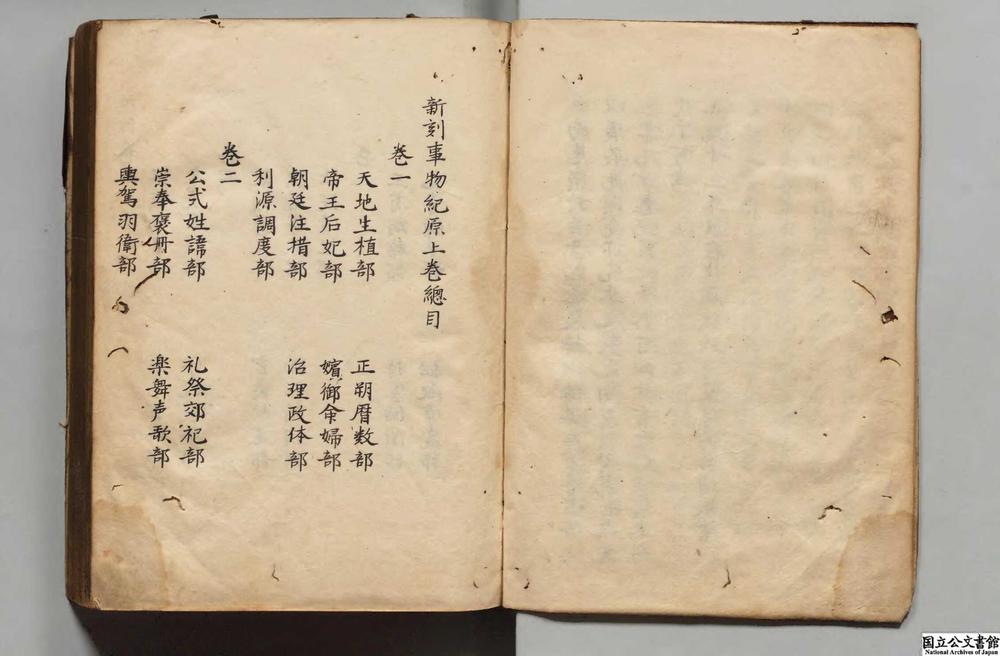 新刻事物紀原上巻總目
巻一
天地生植部　正朔暦数部
帝王后妃部　嬪御命婦部
朝廷注措部　治理政体部
利源調度部
巻二
公式姓諱部　礼祭郊祀部
崇奉褒冊部　楽舞声歌部
輿駕羽衛部
国立公文書館
National Archives of Japan